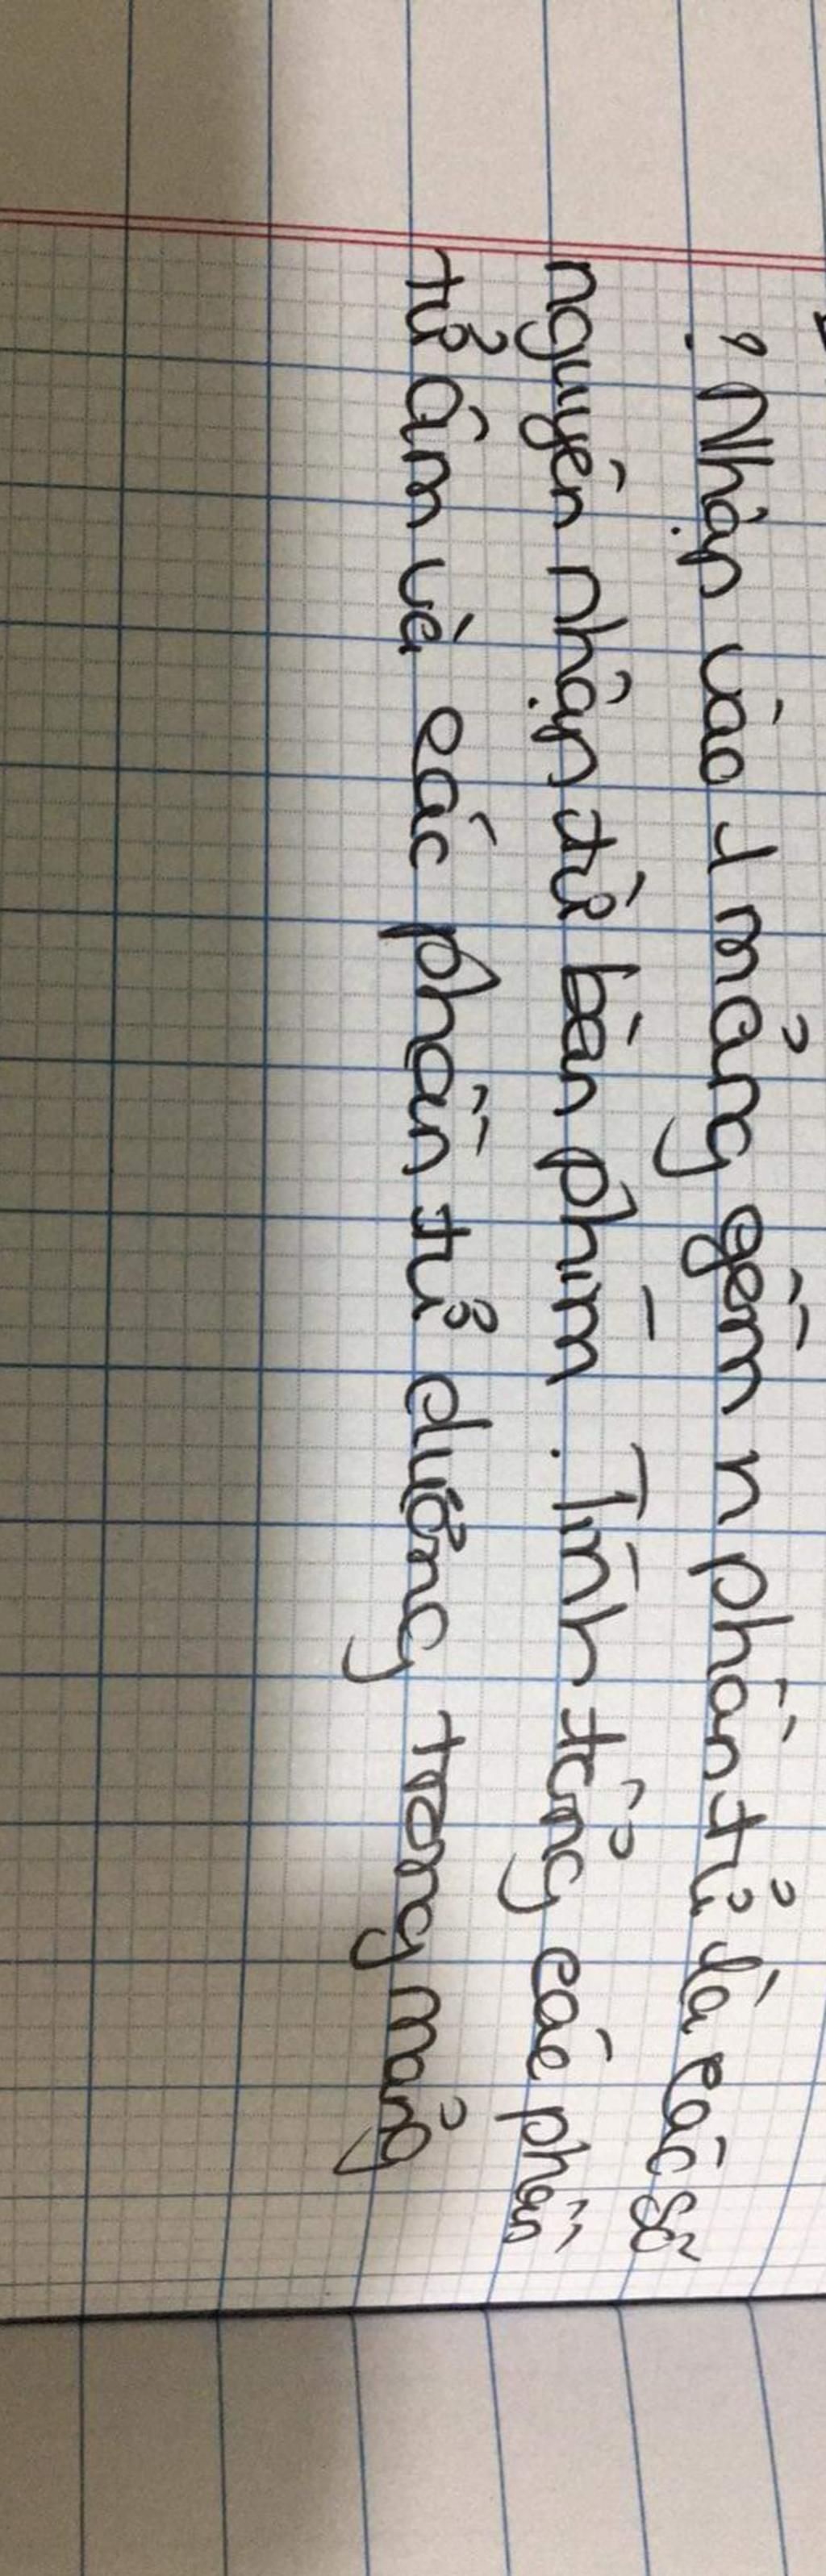 ? Nhập vào 1 mảng gồm n phần tử là các số
nguyên nhập từ bàn phím. Tính tổng các phần
tử âm và các phần tử dương trong mảng